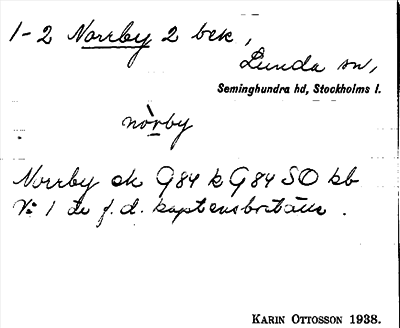 1-2 Norrby 2 bek,
Lunda sn,
Seminghundra hd, Stockholms l.
nòrby
Norrby ek G84 k G84 SO kb
N:o 1 är f.d. kaptensboställe.
KARIN OTTOSSON 1938.